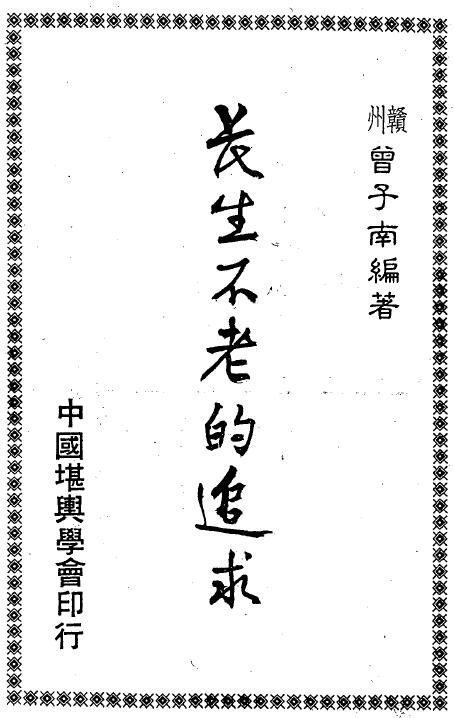 贛州曾子南編著
長生不老的追求
中國堪輿學會印行